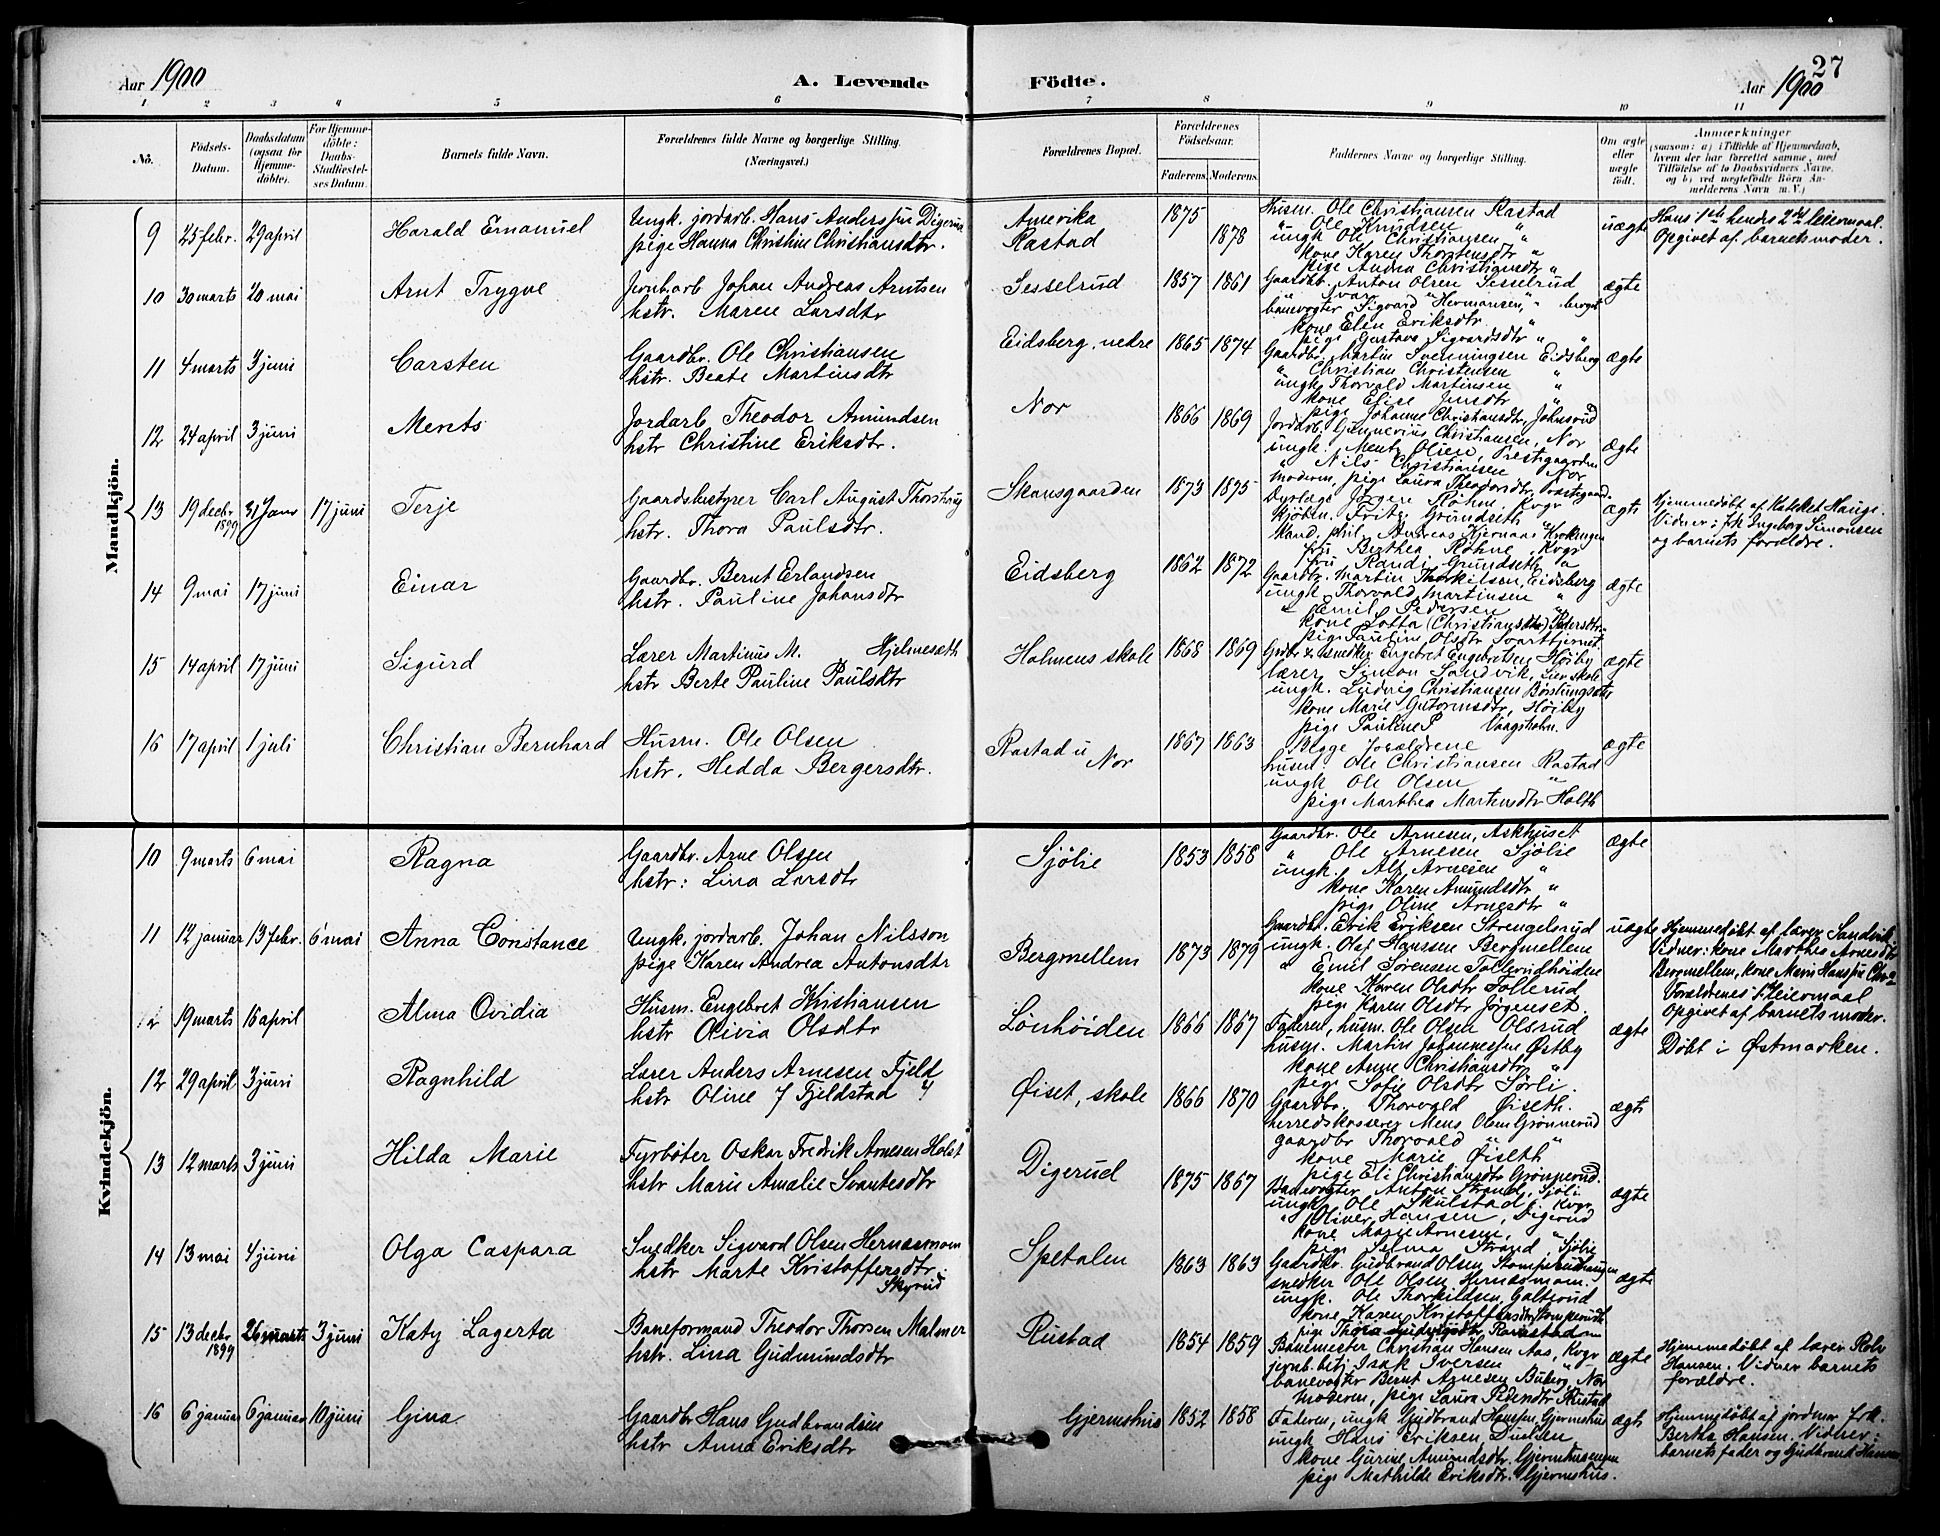 Aar 1900
A. Levende Födte.
27
Aar 1900
1 2 3 4 5 6 7 8 9 10 11
No.
Födsels-Datum.
Daabsdatum (ogsaa for Hjemme-döbte).
For Hjemme-döbte: Daabs-Stadfæstel-ses Datum.
Barnets fulde Navn.
Forældrenes fulde Navne og borgerlige Stilling. (Næringsvei.)
Forældrenes Bopæl.
Forældrenes Födselsaar.
Faderens. Moderens.
Faddernes Navne og borgerlige Stilling.
Om ægte eller uægte født.
Anmærkninger
(saasom: a) i Tilfælde af Hjemmedaab, hvem der har forrettet samme, med Tilföielse af to Daabsvidners Navne, og b) ved uægtefödte Börn An-melderens Navn m. V.)
Mandkjön.
9 25 febr. 29 april Harald Emanuel
Ungk. jordarb. Hans Anderssen Digerud
pige Hanna Christine Christiansdtr.
Amerika
Rastad
1875 1878
Husm. Ole Christiansen Rastad
" Ole Knudsen "
ungk Ole Christiansen "
kone Karen Thorstensdtr "
pige Andrea Christiansdtr "
uægte
Hans 1ste hendes 2det leiermaal.
Opgivet af barnets moder.
10 30 marts 20 mai Arnt Trygve
Jernbarb Johan Andreas Arntsen
hstr. Maren Larsdtr
Sesselrud
1857 1861
Gaardbr. Anton Olsen Sesselrud
" Ivar " "
banevogter Sigvard Hermansen,
kone Elen Eriksdtr. "
pige Gustava Sigvardsdtr " "
ægte
11 4 marts 3 juni Carsten
Gaardbr. Ole Christiansen
hstr. Beate Martinsdtr
Eidsberg, nedre
1865 1874
Gaardbr. Martin Svenningsen Eidsberg
" Christian Christensen "
ungk Thorvald Martinsen "
kone Elise Jensdtr "
pige Johanne Christiansdtr, Johnsrud
ægte
12 24 april 3 juni Ments
Jordarb Theodor Amundsen
hstr Christine Eriksdtr.
Nor
1866 1869
Jordarb. Gunnerius Christiansen, Nor
ungk. Mentz Olsen, Prestegaarden
" Nils Christiansen Nor
Moderen, pige Laura Theodorsdtr, Prestegaard.
ægte
13 19 decbr 1899 31 Janr 17 juni Terje
Gaardsbestyrer Carl August Thorshaug
hstr. Thora Paulsdtr.
Skansgaarden
1873 1875
Dyrlæge Jörgen Röhne, Kvgr
Kjöbm. Fritz Grundseth "
Kand. phil. Andreas Hjernaas
fru Berthea Röhne, Kvgr
fru Randi Grundseth "
ægte
Hjemmedøbt af Kateket Hauge.
Vidner: frk Ingeborg Simonsen
og barnets forældre.
14 9 mai 17 juni Einar
Gaardbr. Bernt Erlandsen
hstr. Pauline Johansdtr
Eidsberg
1862 1872
Gaardbr. Martin Thorkilsen, Eidsberg
ungk Thorvald Martinsen "
" Emil Pedersen "
kone Lotta (Christiansdtr) Pedersdtr
pige Pauline Olsdtr Svarttjernet
ægte
15 14 april 17 juni Sigurd
Lærer Martinus M. Hjelmesæth
hstr Berte Pauline Paulsdtr
Holmens skole
1868 1869
Grdbr & snedker Engebret Engebretsen Høiby
lærer Simon Sandvik, Lier skole
ungk. Ludvig Christiansen Børslungsæter
kone Marie Gutormsdtr, Høiby
pige Pauline P Vaagsholm.
ægte
16 17 april 1 juli Christian Bernhard
Husm. Ole Olsen
hstr. Hedda Bergersdtr.
Rastad u Nor
1867 1863
Begge forældrene
husm. Ole Christiansen Rastad
ungk Ole Olsen "
pige Marthea Martinsdtr Holth
ægte
Kvindekjön.
10 9 marts 6 mai Ragna
Gaardbr. Arne Olsen
hstr: Lina Larsdtr
Sjölie
1853 1858
Gaardbr. Ole Arnesen, Askhuset
" Ole Arnesen Sjölie
ungk. Alf Arnesen "
kone Karen Amundsdtr "
pige Oline Arnesdtr "
ægte
11 12 januar 13 febr. 6 mai Anna Constance
Ungk. jordarb. Johan Nilsson
pige Karen Andrea Antonsdtr
Bergmellem
1873 1879
Gaardbr. Erik Eriksen Strengelsrud
ungk. Olaf Hanssen Bergmellem
" Emil Sørensen Tollerudhöiden
kone Karen Olsdtr Tollerud
pige Karen Olsdtr Jørgenset.
uægte
Hjemmedøbt af lærer Sandvik
Vidner: kone Marthea Arnesdtr
Bergmellem, kone Maria Hanssen
Forældrenes 1ste leiermaal
Opgivet af barnets moder.
12 19 marts 16 april Alma Ovidia
Husm. Engebret Kristiansen
hstr Olivia Olsdtr
Lönhöiden
1866 1867
Faderen, husm. Ole Olsen Olsrud
husm. Martin Johannessen Østby
kone Anne Christiansdtr "
pige Sofie Olsdtr Sørli.
ægte
Döbt i Østmarken.
12 29 april 3 juni Ragnhild
Lærer Anders Arnesen Fjeld
hstr Oline J Fjeldstad
Øiset, skole
1866 1870
Gaardbr. Thorvald Øiseth.
herredskasserer Mens Olsen Grønnerud
gaardbr Thorvald " "
kone Marie Øiseth
pige Eli Christiansdtr Grønnerud.
ægte
13 12 marts 3 juni Hilda Marie
Fyrböter Oskar Fredrik Arnesen Holst
hstr Marie Amalie Svantesdtr
Digerud
1875 1867
Banevogter Anton Strand, Sjöli
ungk Ole Skulstad, Kvgr
" Oliver Hansen, Digerud
kone Marie Arnesen, "
pige Selma Strand, Sjölie
ægte
14 13 mai 4 juni Olga Caspara
Snedker Sigvard Olsen Hernæsmoen
hstr Marte Kristoffersdtr. Skyrud
Spetalen
1863 1863
Gaardbr. Gudbrand Olsen, Stomperudhaugen
snedker Ole Olsen Hernæsmoen.
ungk. Ole Thorkildsen, Galterud
kone Karen Kristoffersdtr, Stomperudh
pige Thora
ægte
15 13 decbr 1899 26 marts 3 juni Katy Lagerta
Baneformand Theodor Thorsen Malmer
hstr. Lina Gudmundsdtr
Rustad
1854 1859
Banemester Christian Hansen Aas, Kvgr
jernb.betj Isak Iversen "
banevogter Bernt Arnesen Buberg, Nor
Moderen, pige Laura Pedersdtr Rustad
ægte
Hjemmedøbt af lærer Rolv
Hansen. Vidner barnets
forældre.
16 6 januar 6 januar 10 juni Gina
Gaardbr Hans Gudbrandsen
hstr Anna Eriksdtr
Gjermshus
1852 1858
Faderen, ungk Gudbrand Hanssen, Gjermshus
ungk Hans Eriksen Dulden
kone Gurine Amundsdtr. Gjermshusengen
pige Mathilde Eriksdtr. Gjermshus.
ægte
Hjemmedøbt af jordmor frk.
Bertha Hansen. Vidner:
barnets fader og Gudbrand Hansen